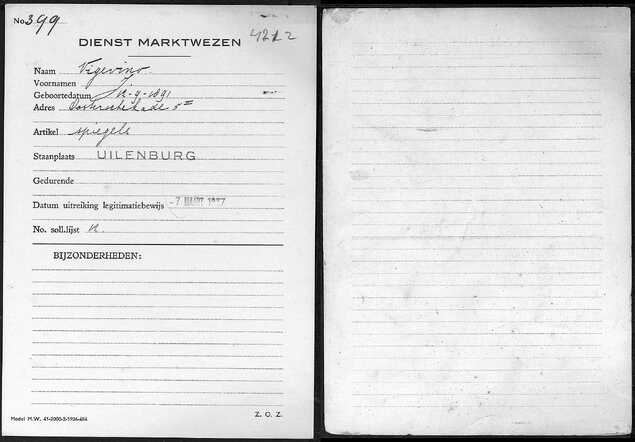 No 399
4212
DIENST MARKTWEZEN
Naam Vigeveno
Voornamen J.
Geboortedatum 12-9-1891
Adres
Artikel spiegels
Staanplaats UILENBURG
Gedurende
Datum uitreiking legitimatiebewijs -7 MAART 1937
No. soll.lijst
BIJZONDERHEDEN:
Model M.W. 41-2000-2-1936-684
Z. O. Z.